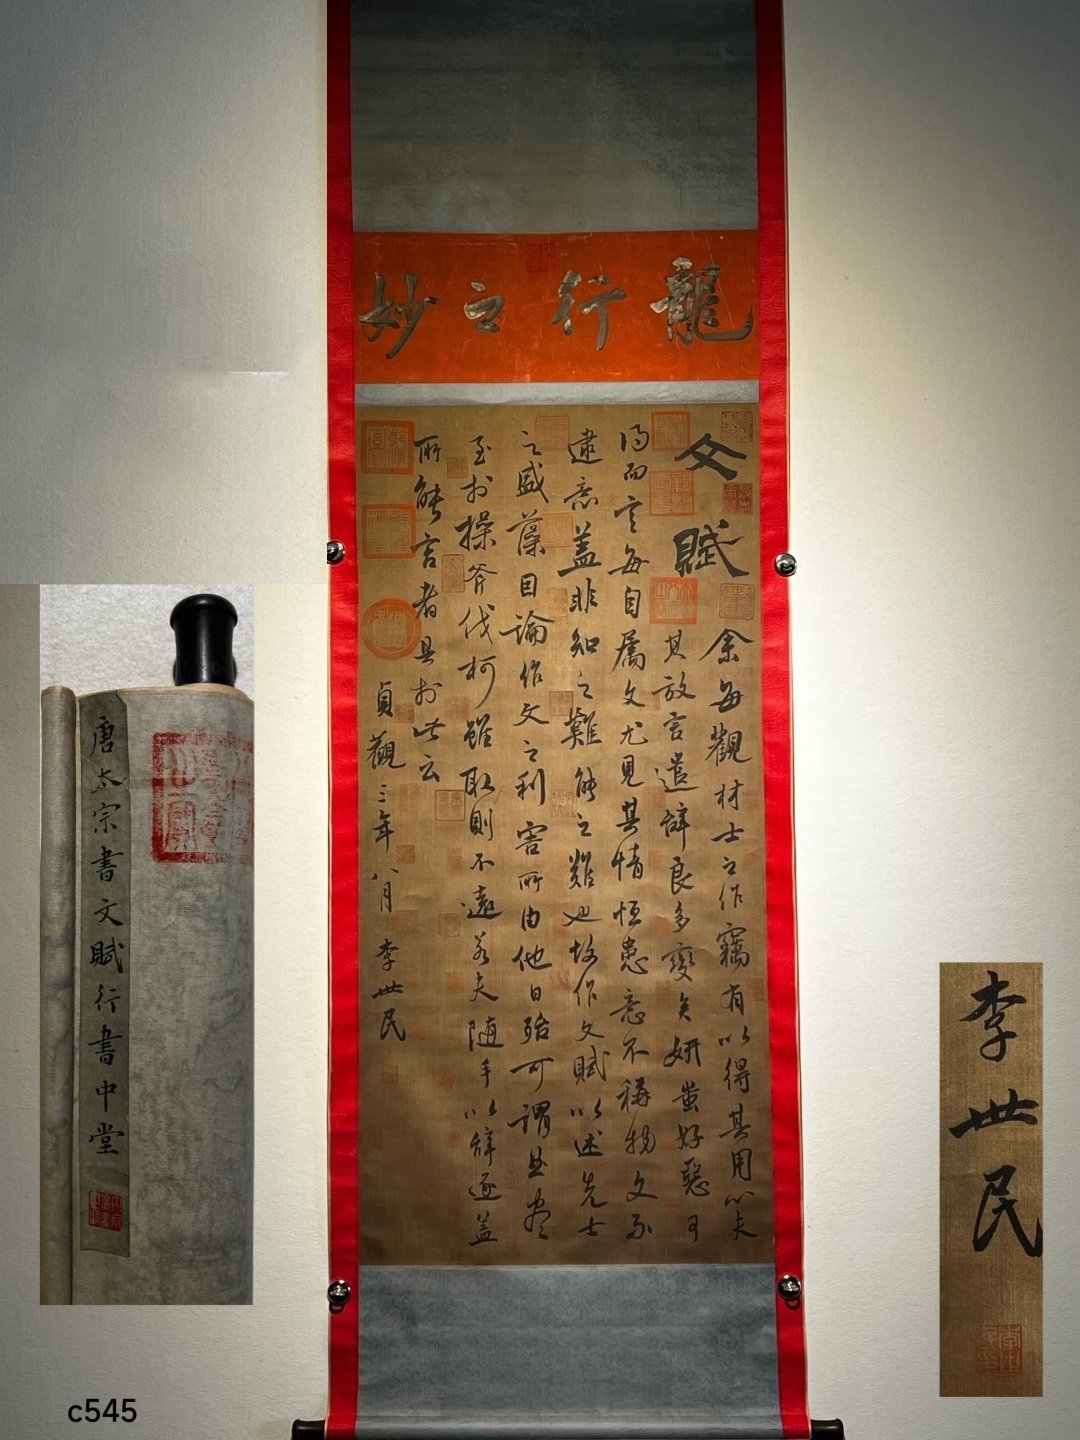 龍行之妙
文賦
余每觀材士之作竊有以得其用心夫
其放言遣辭良多變矣妍蚩好惡可
得而言每自屬文尤見其情恒患意不稱物文不
逮意盖非知之難能之難也故作文賦以述先士
之盛藻因論作文之利害所由他日殆可謂曲盡
至於操斧伐柯雖取則不遠若夫隨手以辭遂盖
所能言者具於此云
貞觀三年八月 李世民
唐太宗書文賦行書中堂
李世民
c545